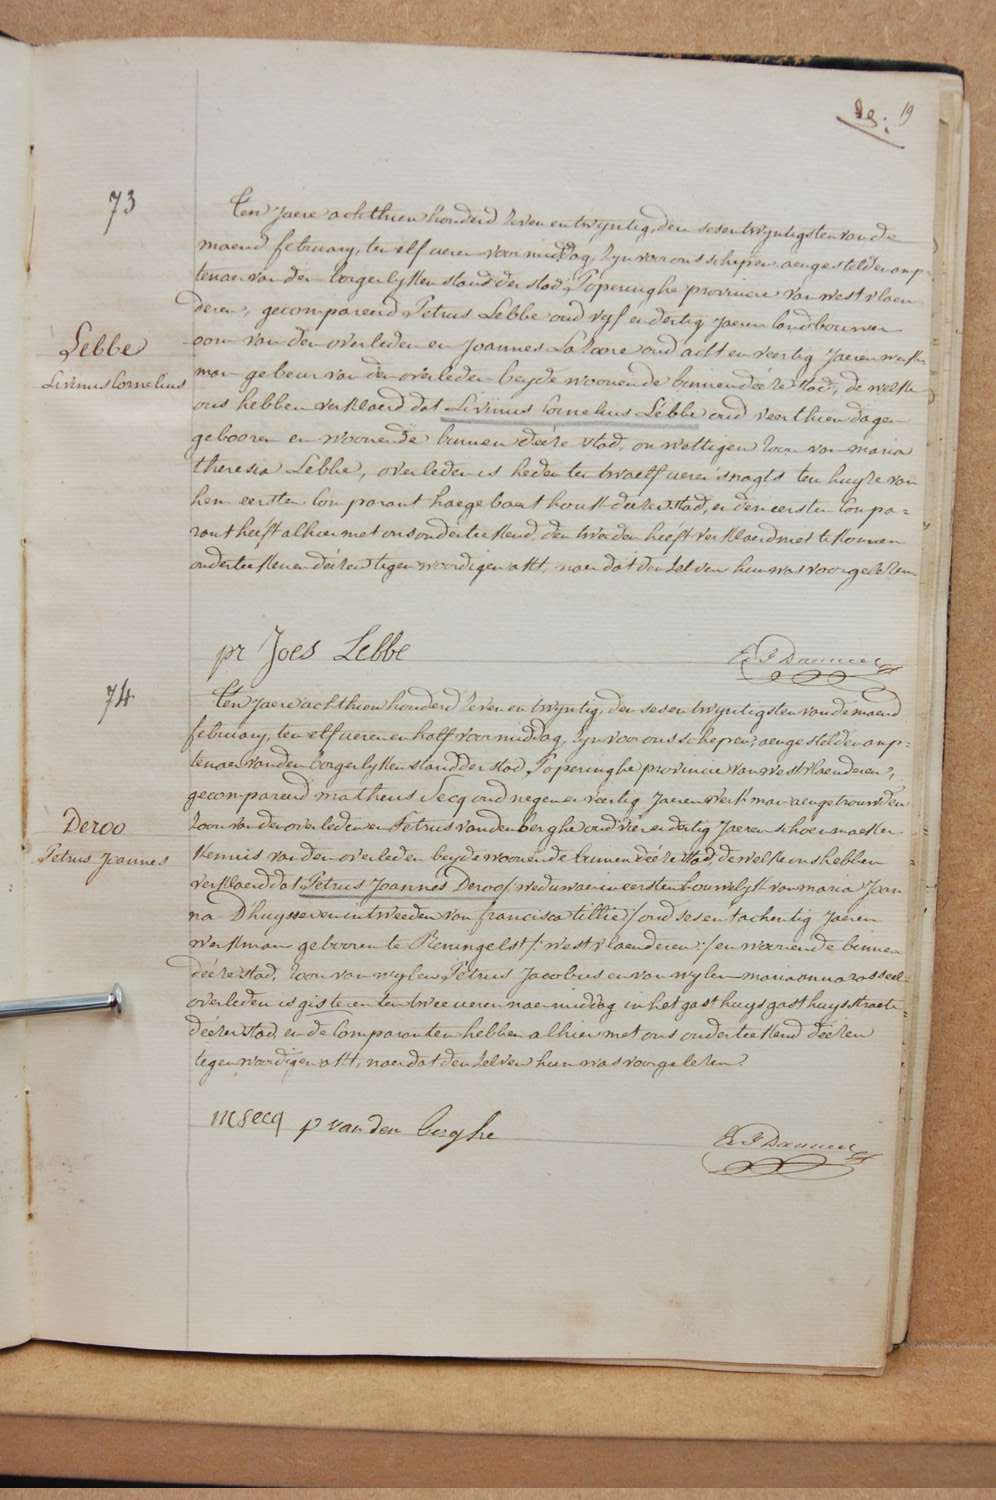 19
73
Ten Jaere achthien honderd zeven en twyntig, den sesentwyntigsten van de
maend february, ten elf ueren voormiddag, zyn voor ons schepen aengestelden amp-
tenaer van den borgerlyken stand der stad Poperinghe provincie van westvlaen
deren, gecompareerd Petrus Lebbe oud vyf en dertig Jaeren landbouwer
oom van den overleden en Joannes La haere oud acht en veertig Jaeren werk-
man gebeur van den overleden beyde woonende binnen deéze stad, de welke
ons hebben verklaerd dat Livinus Cornelius Lebbe oud veerthien dagen
gebooren en woonende binnen deéze stad, onwettigen zoon van maria
theresia Lebbe, overleden is heden ten twaelf ueren snagts ten huyze van
hem eersten Comparant haegebaert hoek deézer stad, en den eersten Compa=
rant heeft alhier met ons onderteekend, den tweeden heéft verklaerd niet te konnen
onderteekenen deézen tegenwoordigen akt, naer dat den zelven hun was voorgelezen
Lebbe
Livinus Cornelius
pr Joes Lebbe
74
Ten Jaere achthien honderd zeven en twyntig, den sesen twyntigsten van de maend
february, ten elf ueren en half voormiddag, zyn voor ons schepen, aengestelden amp=
tenaer van den borgerlyken stand der stad Poperinghe provincie van westvlaenderen,
gecompareerd matheus Secq oud negen en veertig Jaeren werkman aengetrouwden
zoon van den overleden en Petrus vanden berghe oud vier en dertig Jaeren schoenmaeker
kennis van den overleden beyde woonende binnen deéze stad, de welke ons hebben
verklaerd dat Petrus Joannes Deroo / weduwaer in eersten houwelyk van maria Joan
na Dhuysser en in tweeden van francisca tillie / oud sesen tachentig Jaeren
werkman gebooren te Reningelst / westvlaenderen / en woonende binnen
deéze stad, zoon van wylen Petrus Jacobus en van wylen maria anna rosseel
overleden is gisteren ten twee ueren naermiddag in het gasthuys gasthuysstraete
deézer stad, en de Comparanten hebben alhier met ons onderteekend deézen
tegenwoordigen akt, naer dat den zelven hun was voorgelezen.
Deroo
Petrus Joannes
m secq p van den berghe